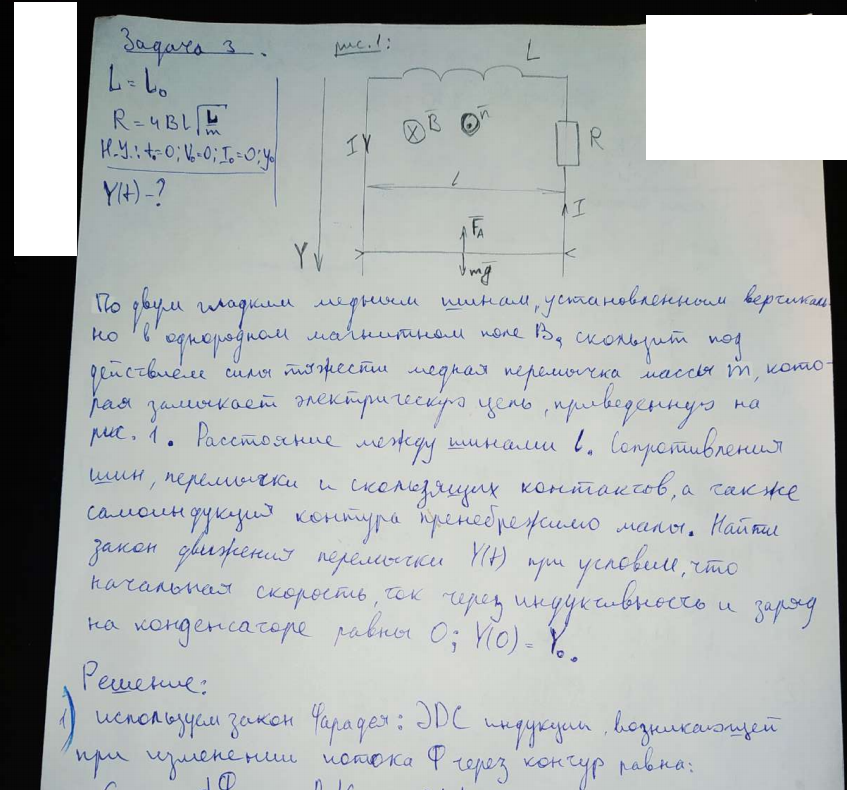 Задача 3.
рис. 1:
L = L₀
R = 4Bl√(L/m)
Н.У.: t₀=0; V₀=0; I₀=0; y₀
Y(t) - ?
L
I
B̄
n̄
R
l
I
Y
F̄A
mḡ
По двум гладким медным шинам, установленным вертикаль-
но в однородном магнитном поле B, скользит под
действием силы тяжести медная перемычка массы m, кото-
рая замыкает электрическую цепь, приведенную на
рис. 1. Расстояние между шинами l. Сопротивления
шин, перемычки и скользящих контактов, а также
самоиндукция контура пренебрежимо малы. Найти
закон движения перемычки Y(t) при условии, что
начальная скорость, ток через индуктивность и заряд
на конденсаторе равны 0; Y(0) = Y₀.
Решение:
1) используем закон Фарадея: ЭДС индукции, возникающей
при изменении потока Ф через контур равна: